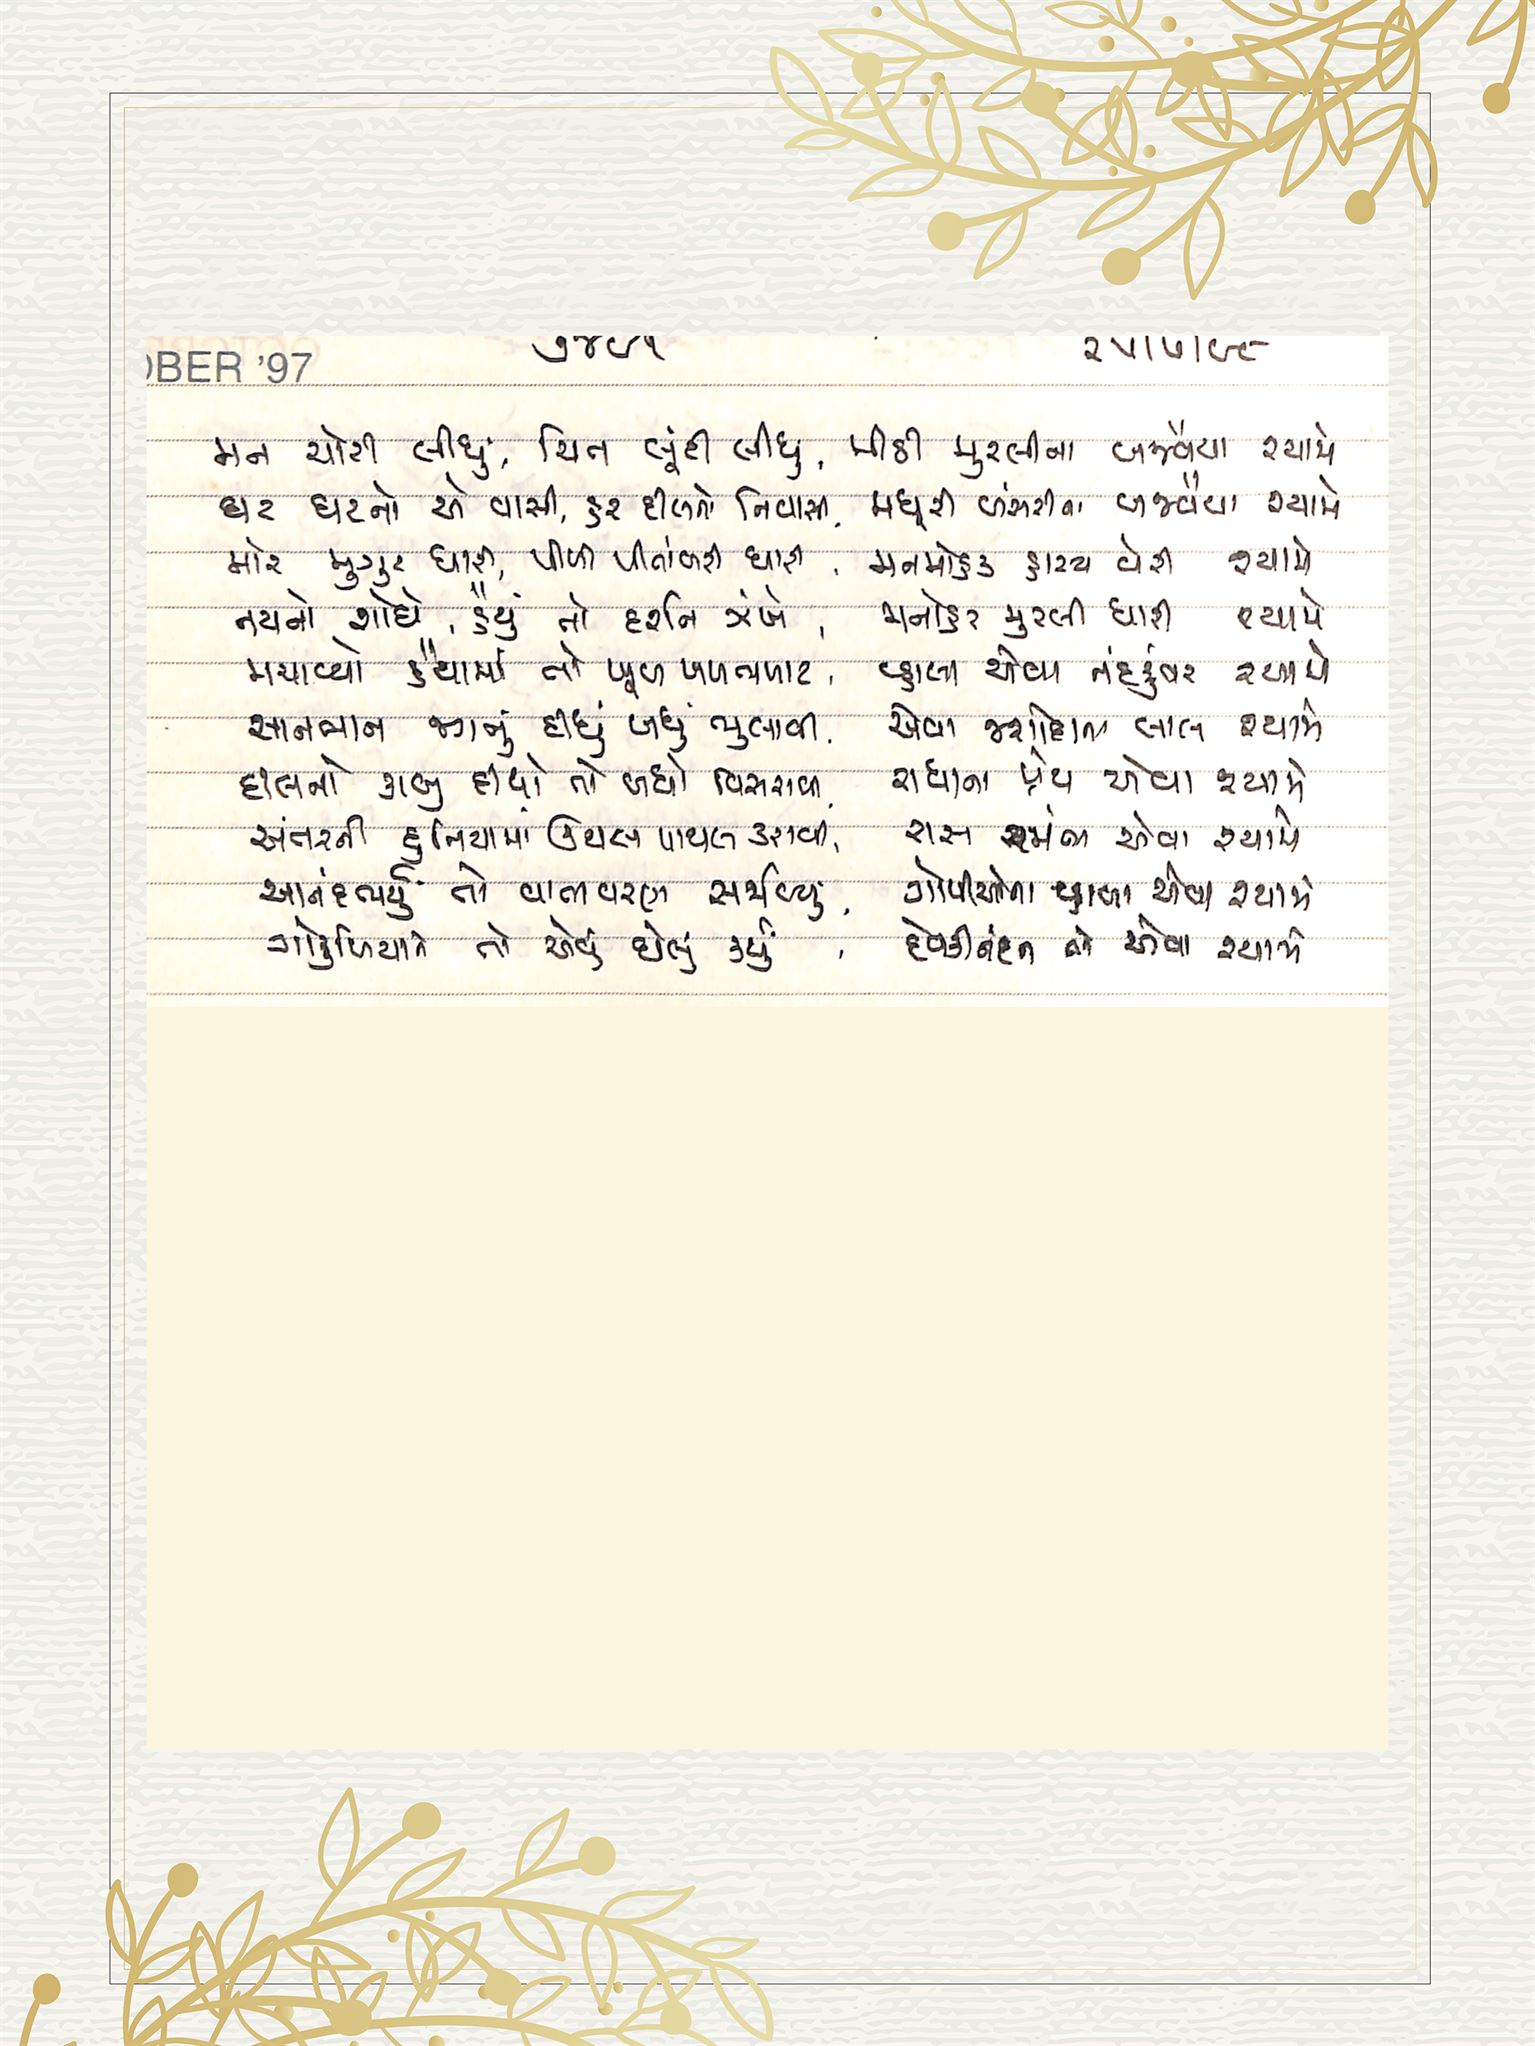 OBER '97 ૭૪૯૧ ૨૫/૭/૯૮
મન ચોરી લીધું, ચિત્ત લૂંટી લીધું, મીઠી મુરલીના બજવૈયા શ્યામે
ઘટ ઘટનો એ વાસી, હર દીલનો નિવાસી, મધૂરી બંસરીના બજવૈયા શ્યામે
મોર મુગુટ ધારી, પીળી પીતાંબરી ધારી, મનમોહક હાસ્ય વેરી શ્યામે
નયનો શોધે, હૈયું તો દર્શન ઝંખે, મનોહર મુરલી ધારી શ્યામે
મચાવ્યો હૈયામાં તો ખૂબ ખળભળાટ, વ્હાલા એવા નંદકુંવર શ્યામે
સાનભાન જગનું દીધું બધું ભુલાવી, એવા જશોદાના લાલ શ્યામે
દીલનો કાબુ દીધો તો બધો વિસરાવી, રાધાના પ્રેય એવા શ્યામે
અંતરની દુનિયામાં ઉથલ પાથલ કરાવી, રાસ એવા શ્યામે
આનંદભર્યું તો વાતાવરણ સર્જાવ્યું, ગોપીઓના વ્હાલા એવા શ્યામે
ગોકુળિયાને તો એવું ઘેલું કર્યું, દેવકીનંદન એવા શ્યામે